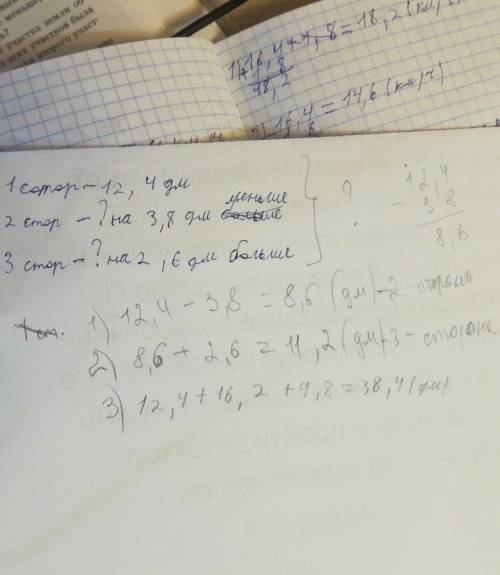 участка земли
этих участков была
второго участ-
1) 16,4 + 1,8 = 18,2 (км/ч)
1,8
18,2
2) 16,4
= 14,6 (км/ч)
1 стор – 12, 4 дм
меньше
2 стор – ? на 3,8 дм больше
3 стор – ? на 2 ,6 дм больше
?
12,4
- 3,8
8,6
1) 12,4 – 3,8 = 8,6 (дм) – 2 - сторона
2) 8,6 + 2,6 = 11,2 (дм) – 3 - стороне
3) 12,4 + 16, 2 + 9,8 = 38,4 (дм)